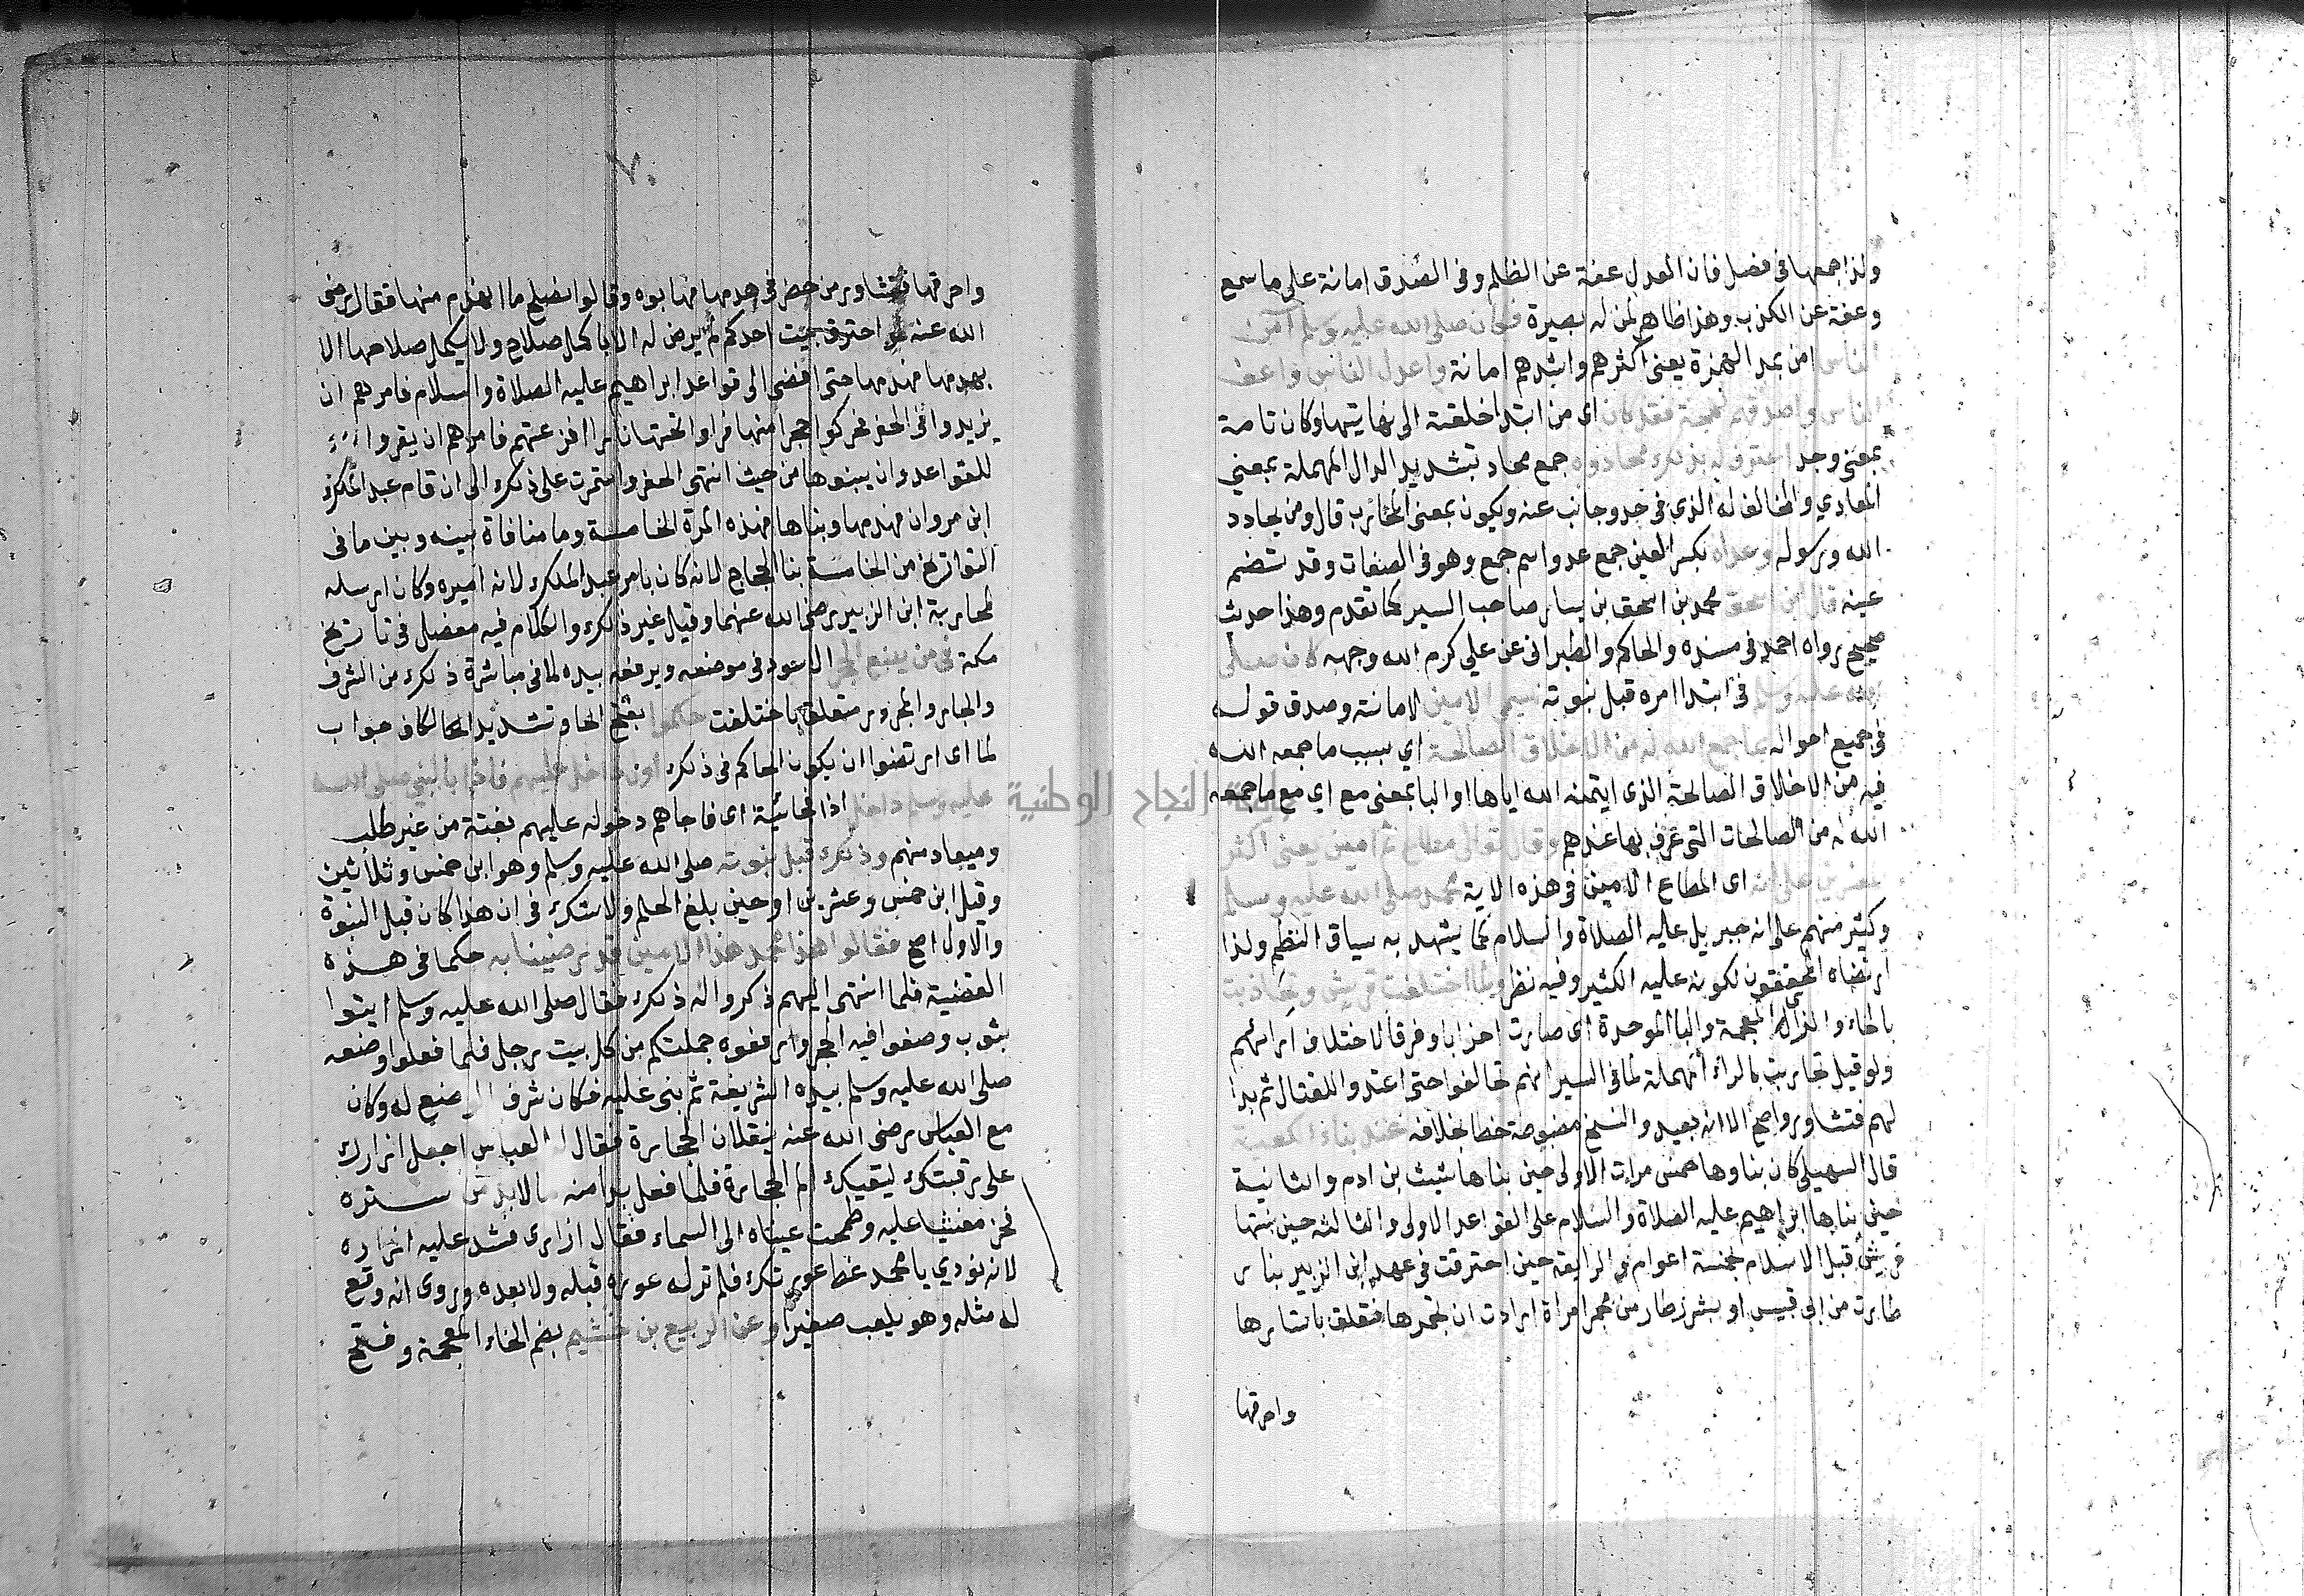 ولذا جمعها في فصل فان العدل عفة عن الظلم وفي الصدق امانة على ما سمع
وعفة عن الكذب وهذا ظاهر لمن له بصيرة فكان صلى الله عليه وسلم آمن
الناس امن بمد الهمزة يعنى اكثرهم واشدهم امانة واعدل الناس واعف
الناس واصدقهم لهجة فقد كان اى من ابتدا خلقته الى نهايتها وكان تامة
بمعنى وجد اعترف له بذلك محادوه جمع محاد بتشديد الدال المهملة بمعنى
المعادي والمخالف له الذي في حد وجانب عنه ويكون بمعنى المحارب قال ومن يحادد
الله ورسوله وعداه بكسر العين جمع عدو اسم جمع وهو في الصفات وقد تضم
عينه قال ابن اسحق محمد بن اسحق بن يسار صاحب السير كما تقدم وهذا حديث
صحيح رواه احمد في مسنده والحاكم والطبراني عن علي كرم الله وجهه كان صلى
الله عليه وسلم في ابتدا امره قبل نبوته يسمى الامين لامانته وصدق قوله
في جميع احواله بما جمع الله له من الاخلاق الصالحة اي بسبب ما جمعه الله
فيه من الاخلاق الصالحة الذي ايتمنه الله اياها او البا بمعنى مع اي مع ما جمعه
الله له من الصالحات التي عرف بها عندهم وقال تعالى مطاع ثم امين يعنى اكثر
المفسرين على انه اى المطاع الامين في هذه الاية محمد صلى الله عليه وسلم
وكثير منهم على انه جبريل عليه الصلاة والسلام كما يشهد به سياق النظم ولذا
ارتضاه المحققون لكونه عليه الكثير وفيه نظر ولما اختلفت قريش وتحازبت
بالحاء والزاي المعجمة والبا الموحدة اى صارت احزابا وفرقا لاختلاف ارائهم
ولو قيل تحاربت بالراء المهملة لما في السير انهم تخالفوا حتى اعتدوا للقتال ثم بدا
لهم فتشاوروا صح الا انه بعيد والنسخ مضبوطة خطا بخلافه عند بناء الكعبة
قال السهيلي كان بناوها خمس مرات الاولى حين بناها شيث بن ادم والثانية
حين بناها ابراهيم عليه الصلاة والسلام على القواعد الاولى والثالثة حين بنتها
قريش قبل الاسلام بخمسة اعوام والرابعة حين احترقت في عهد ابن الزبير بنار
طارت من ابي قبيس او بشرر طار من مجمر امراة ارادت ان تجمرها فتعلق باستارها
واحرقها
٧٠
واحرقها فتشاور من حضر في هدمها فهابوه وقالوا نصلح ما انهدم منها فقال رضى
الله عنه لو احترق بيت احدكم لم يرض له الا باكمل صلاح ولا يكمل صلاحها الا
بهدمها فهدمها حتى افضى الى قواعد ابراهيم عليه الصلاة والسلام فامرهم ان
يزيدوا في الحفر فحركوا حجرا منها فراوا تحتها نارا افزعتهم فامرهم ان يقروا
للقواعد وان يبنوها من حيث انتهى الحفر واستمرت على ذلك الى ان قام عبد الملك
ابن مروان فهدمها وبناها فهذه المرة الخامسة وما منافاة بينه وبين ما في
التواتريخ من الخامسة بنا الحجاج لانه كان بامر عبد الملك لانه اميره وكان ارسله
لمحاربة ابن الزبير رضى الله عنهما وقيل غير ذلك والكلام فيه مفصل في تاريخ
مكة في من يضع الحجر الاسود في موضعه ويرفعه بيده لما في مباشرة ذلك من الشرف
والجار والمجرور متعلق باختلفت حكموا بفتح الحا وتشديد الكاف جواب
لما اى ارتضوا ان يكون الحاكم في ذلك اول داخل عليهم فاذا بالنبي صلى الله
عليه وسلم داخل اذا فجائية اى فاجاهم دخوله عليهم بغتة من غير طلب
وميعاد منهم وذلك قبل نبوته صلى الله عليه وسلم وهو ابن خمس وثلاثين
وقيل ابن خمس وعشرين او حين بلغ الحلم ولا شك في ان هذا كان قبل النبوة
والاول اصح فقالوا هذا محمد هذا الامين قد رضينا به حكما في هذه
القضية فلما انتهى اليهم ذكروا له ذلك فقال صلى الله عليه وسلم ايتوا
بثوب وضعوا فيه الحجر وارفعوه جملتكم من كل بيت رجل فلما فعلوا وضعه
صلى الله عليه وسلم بيده الشريفة ثم بنى عليه فكان شرف الوضع له وكان
مع العباس رضى الله عنه ينقلان الحجارة فقال له العباس اجعل ازارك
على رقبتك ليقيك الم الحجارة فلما فعل بدا منه ما لابد من ستره
فخر مغشيا عليه وطمحت عيناه الى السماء فقال ازارى فشد عليه ازاره
لانه نودي يا محمد غط عورتك فلم تر له عورة قبله ولا بعده وروى انه وقع
له مثله وهو يلعب صغيرا وعن الربيع بن خثيم بضم الخاء المعجمة وفتح
جامعة النجاح الوطنية